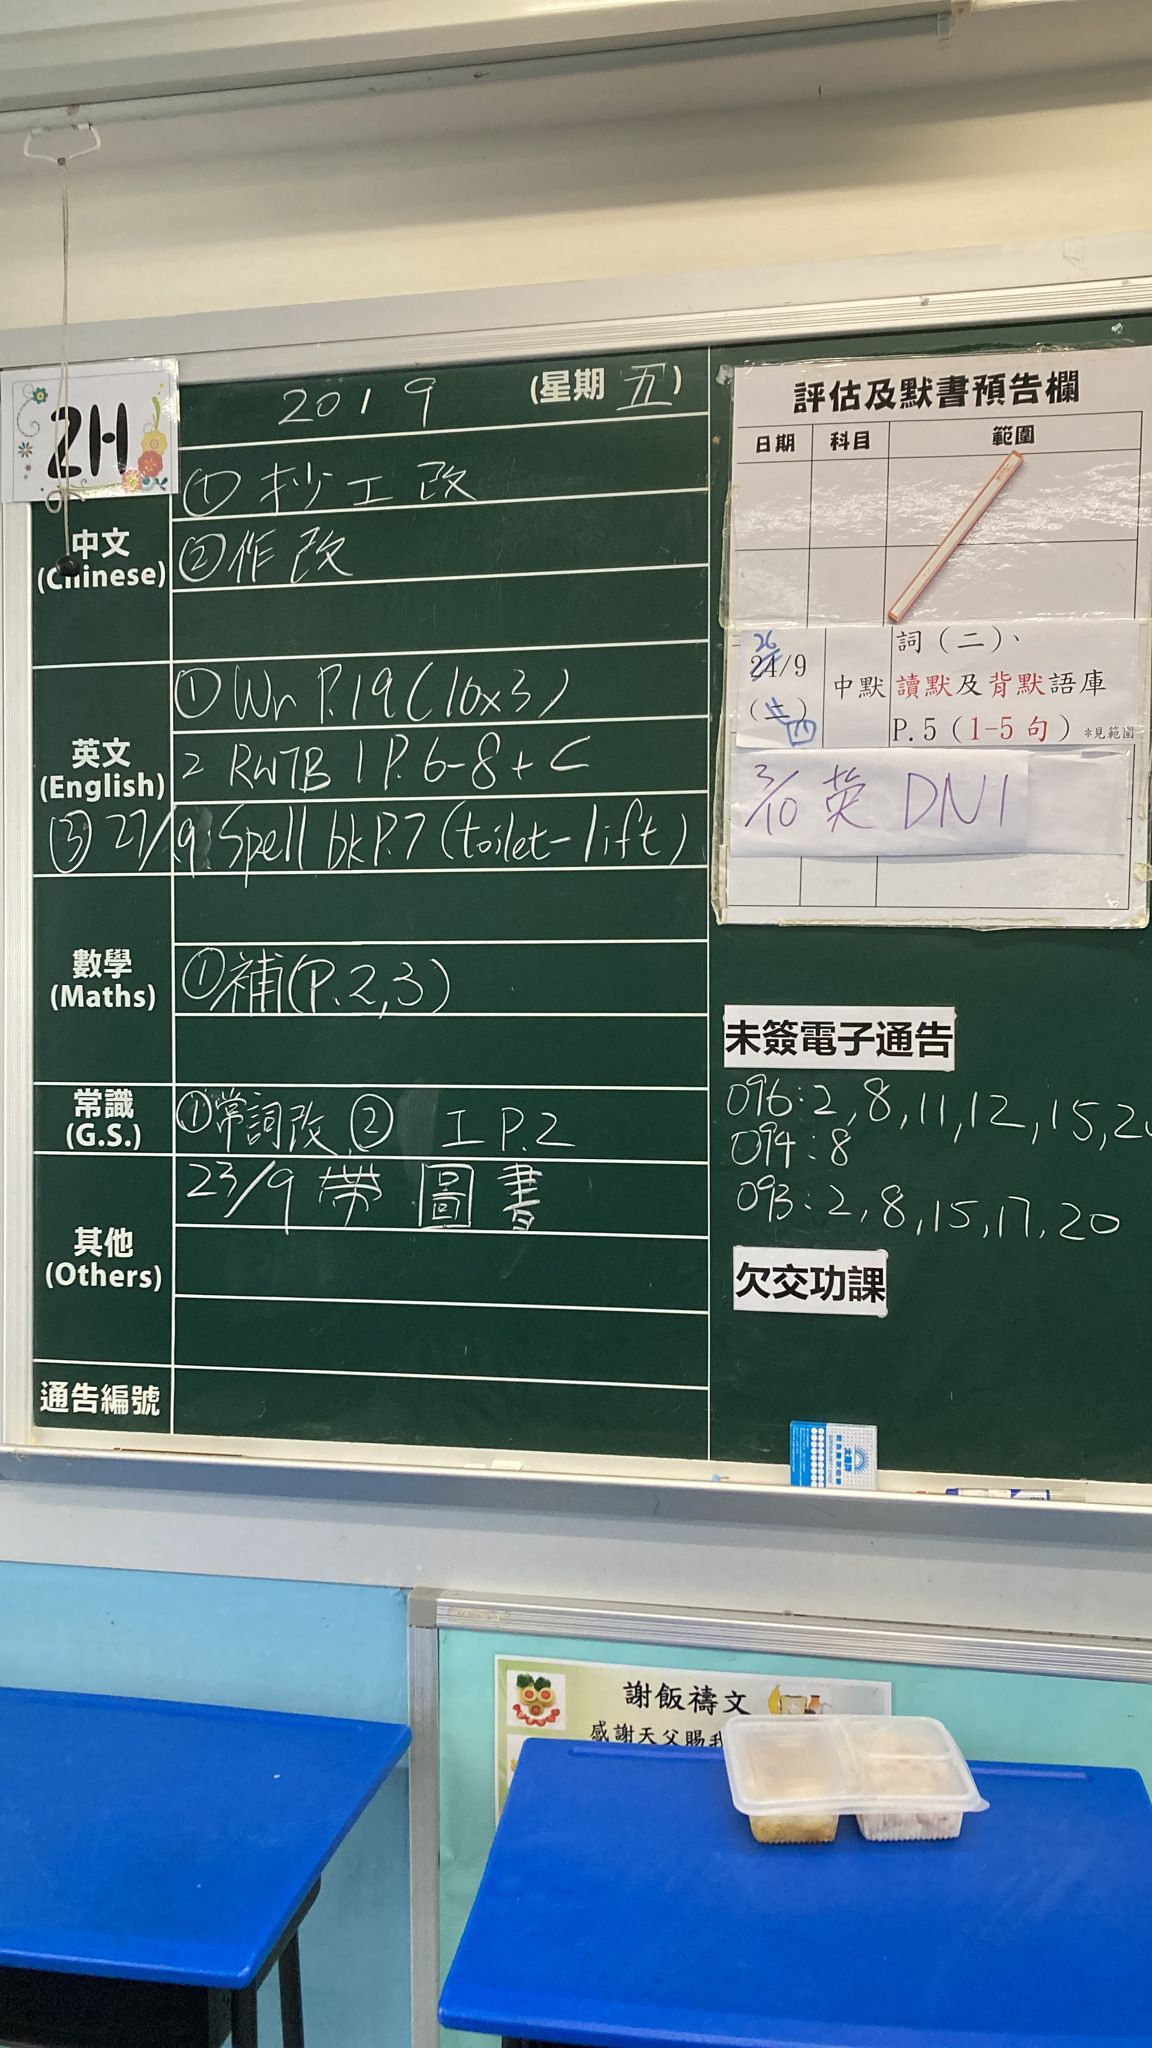 2H
20 / 9 (星期 五)
中文
(Chinese)
① 抄工改
② 作改
英文
(English)
① Wr P.19 (10x3)
2 RWTB 1 P. 6-8 + C
③ 27/9: Spell bk P.7 (toilet-lift)
數學
(Maths)
① 補 (P.2,3)
常識
(G.S.)
① 常詞改 ② 工 P.2
其他
(Others)
23/9 帶 圖 書
通告編號
評估及默書預告欄
日期 科目 範圍
26
24/9
(二)
四
中默
詞（二）、
讀默及背默語庫
P.5（1-5句）*見範圍
3/10 英 DN1
未簽電子通告
096: 2, 8, 11, 12, 15,
094: 8
093: 2, 8, 15, 17, 20
欠交功課
謝飯禱文
感謝天父賜我